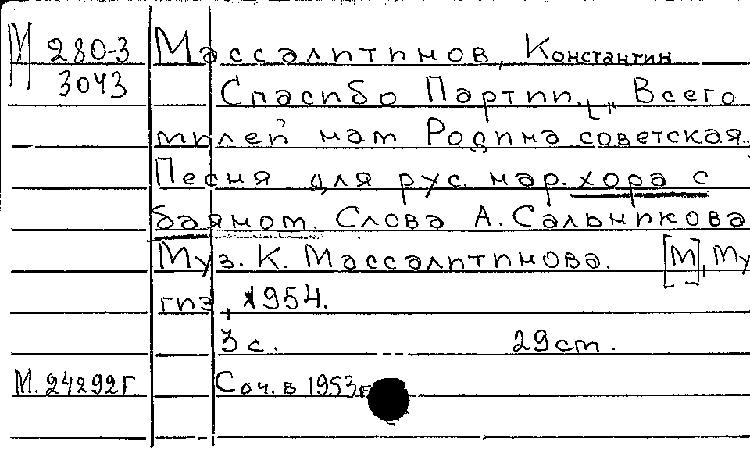 М 280-3 Массалитинов, Константин
3043 Спасибо Партии. [„Всего
милей нам Родина советская..
Песня для рус. нар. хора с
баяном. Слова А. Сальникова
Муз. К. Массалитинова. [М], Му
гиз, 1954.
3 с. 29 см.
М. 24292г Соч. в 1953г